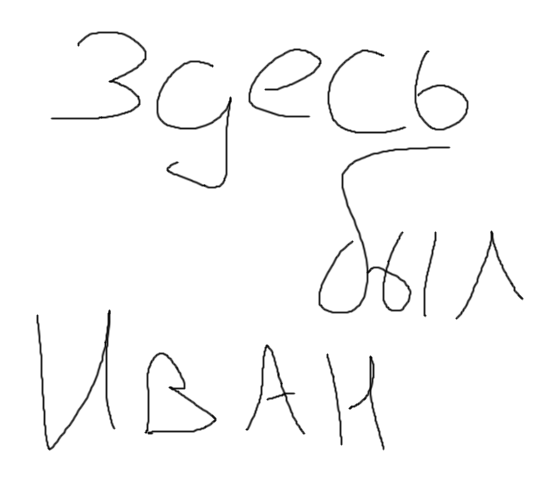 Здесь
был
Иван